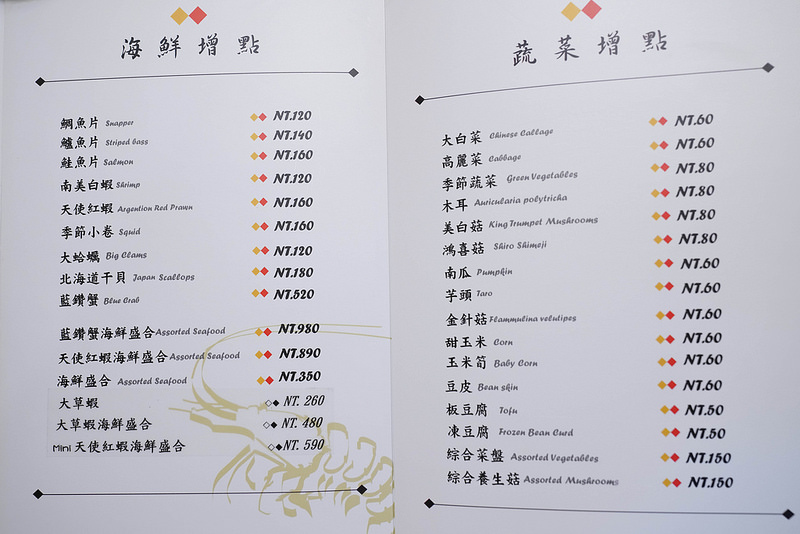 海鮮增點
鯛魚片 Snapper NT.120
鱸魚片 Striped bass NT.140
鮭魚片 Salmon NT.160
南美白蝦 Shrimp NT.120
天使紅蝦 Argention Red Prawn NT.160
季節小卷 Squid NT.160
大蛤蠣 Big Clams NT.120
北海道干貝 Japan Scallops NT.180
藍鑽蟹 Blue Crab NT.520
藍鑽蟹海鮮盛合 Assorted Seafood NT.980
天使紅蝦海鮮盛合 Assorted Seafood NT.890
海鮮盛合 Assorted Seafood NT.350
大草蝦 NT. 260
大草蝦海鮮盛合 NT. 480
Mini 天使紅蝦海鮮盛合 NT. 590
蔬菜增點
大白菜 Chinese Callage NT.60
高麗菜 Cabbage NT.60
季節蔬菜 Green Vegetables NT.80
木耳 Auricularia polytricha NT.80
美白菇 King Trumpet Mushrooms NT.80
鴻喜菇 Shiro Shimeji NT.80
南瓜 Pumpkin NT.60
芋頭 Taro NT.60
金針菇 Flammulina velulipes NT.60
甜玉米 Corn NT.60
玉米筍 Baby Corn NT.60
豆皮 Bean skin NT.60
板豆腐 Tofu NT.50
凍豆腐 Frozen Bean Curd NT.50
綜合菜盤 Assorted Vegetables NT.150
綜合養生菇 Assorted Mushrooms NT.150